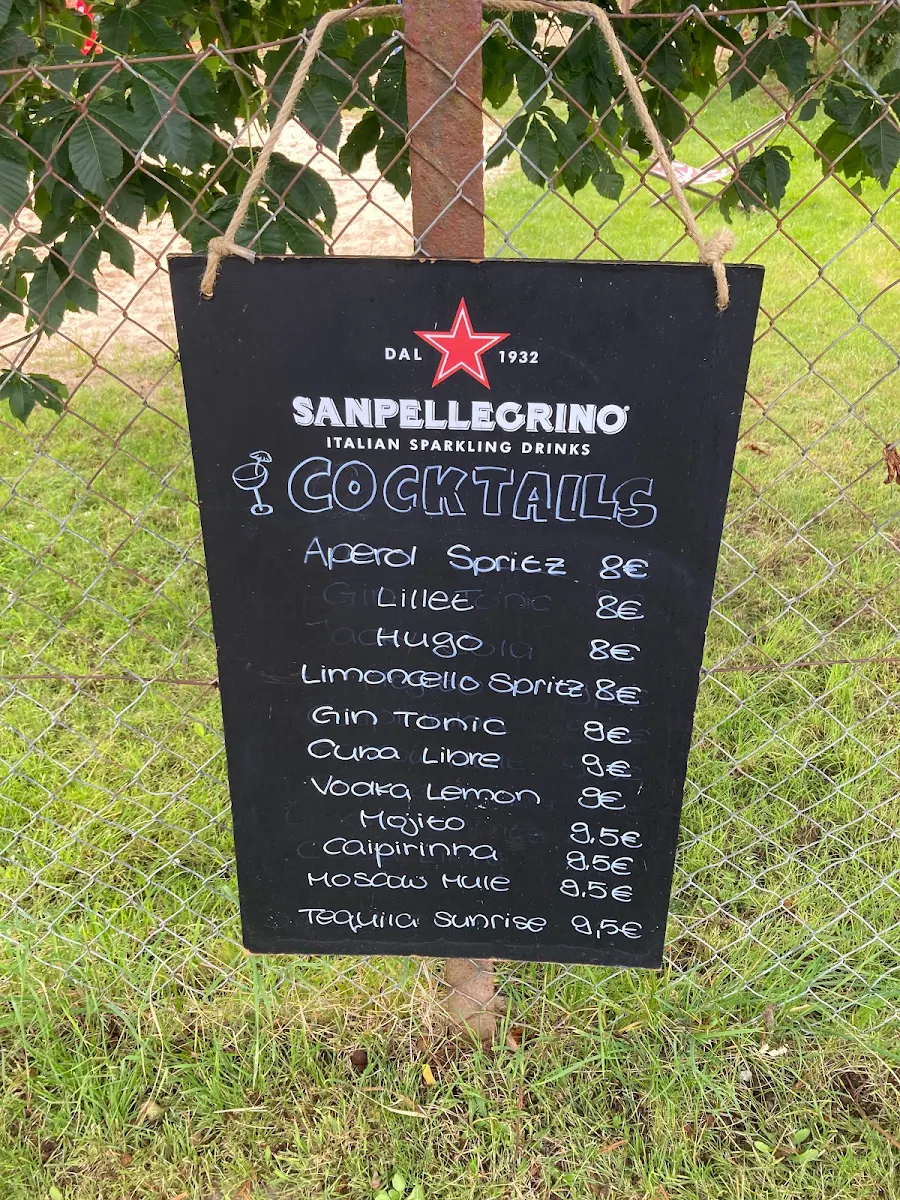 DAL 1932
SANPELLEGRINO
ITALIAN SPARKLING DRINKS
COCKTAILS
Aperol Spritz 8€
Lillet 8€
Hugo 8€
Limoncello Spritz 8€
Gin Tonic 9€
Cuba Libre 9€
Vodka Lemon 9€
Mojito 9.5€
Caipirinha 9.5€
Moscow Mule 9.5€
Tequila Sunrise 9,5€